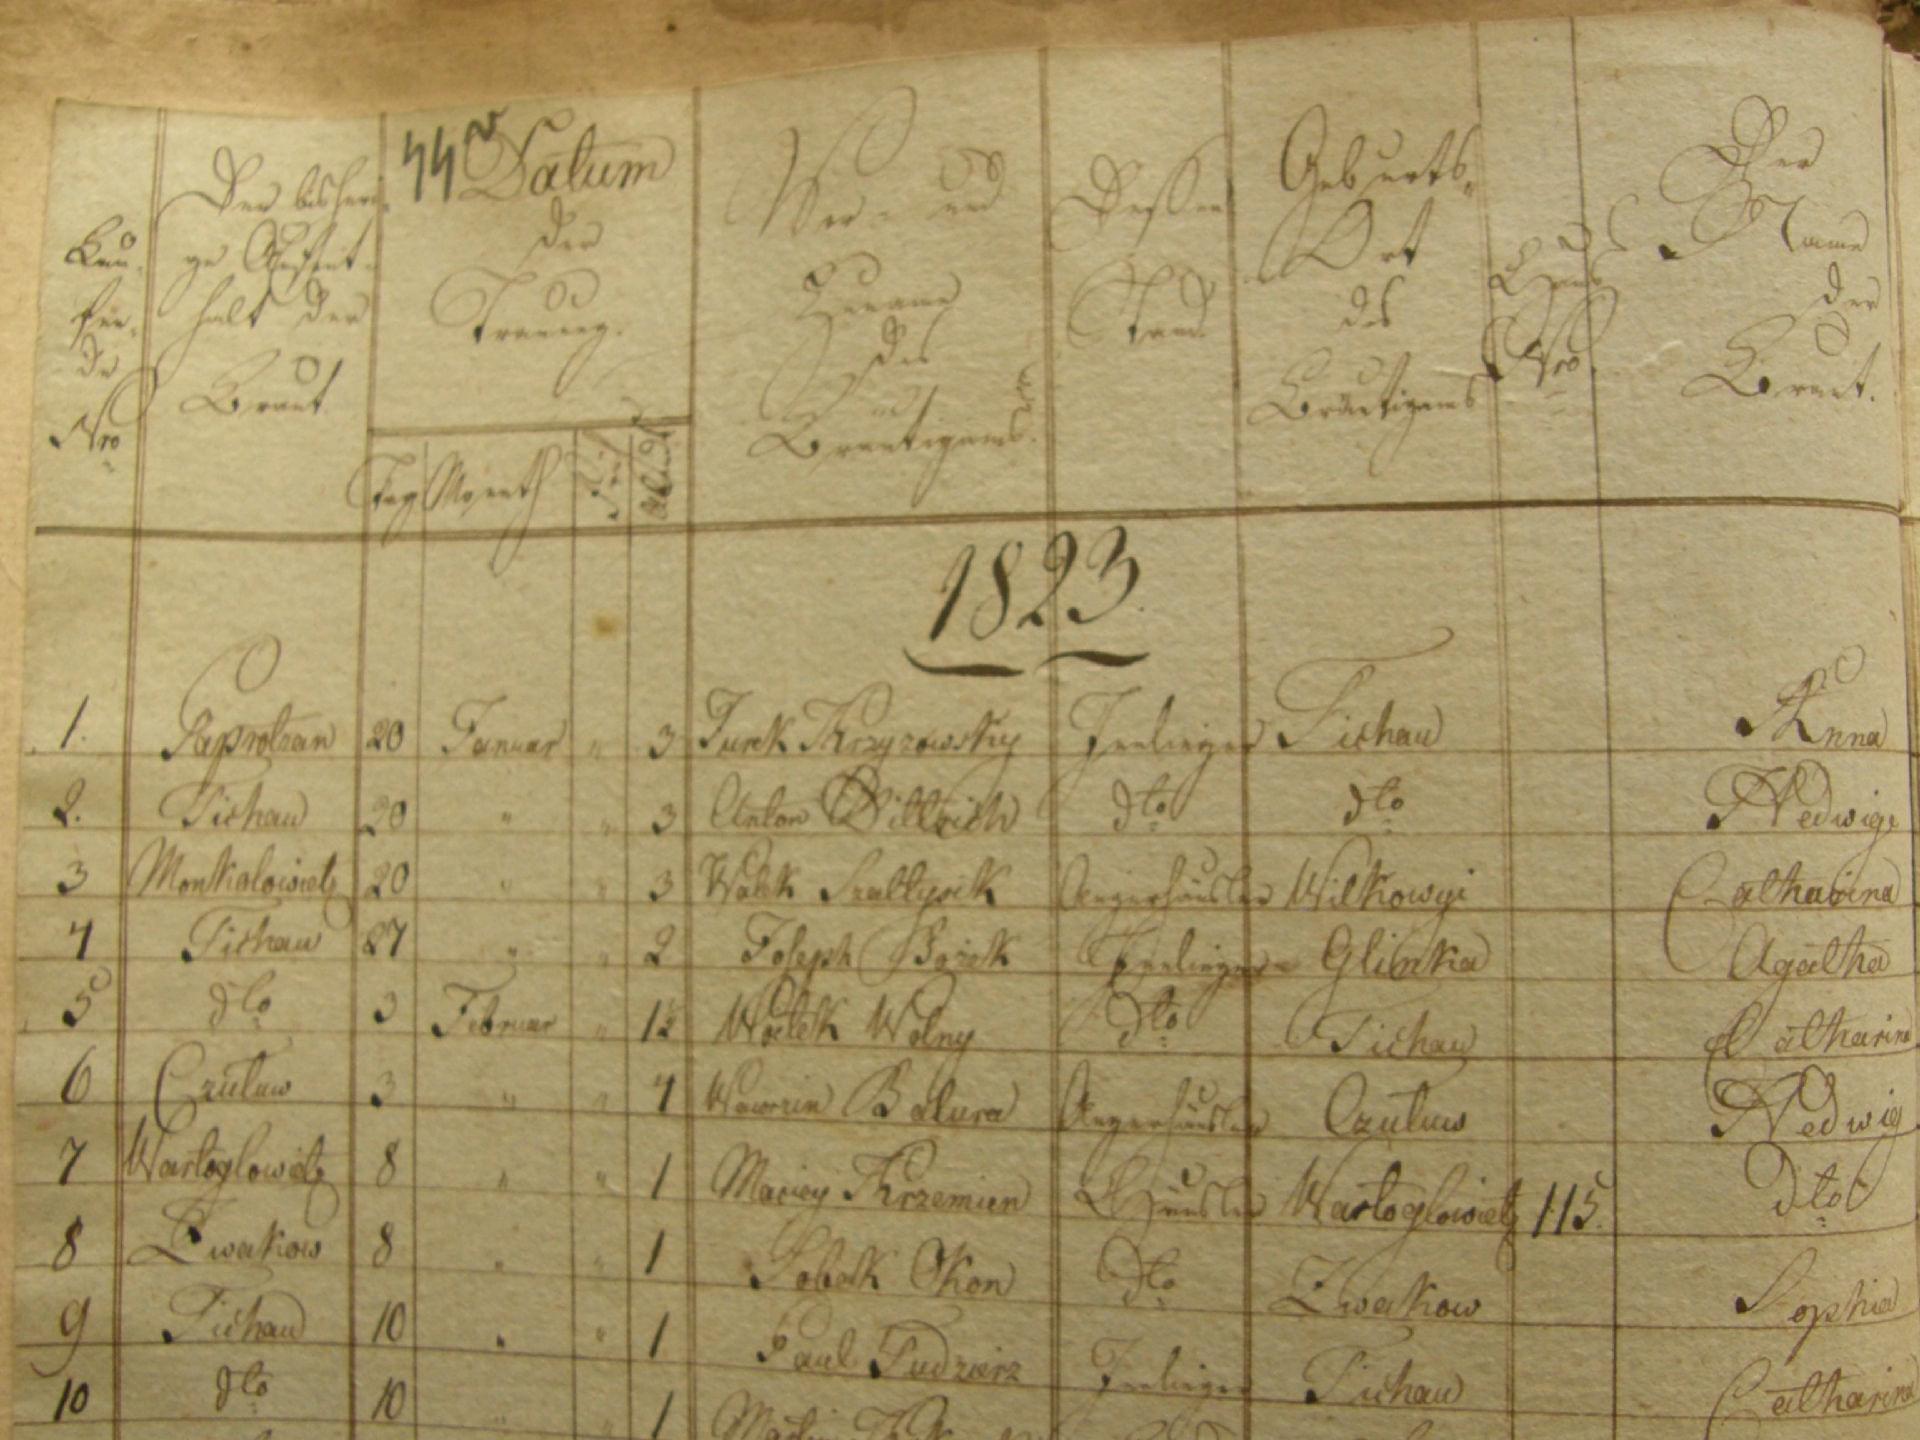 44v
Laufende Nro
Der bisherige Aufenthalt der Braut
Datum der Trauung.
Tag Monath
Vor- und Zuname des Bräutigams.
Dessen Stand.
Geburts-Ort des Bräutigams
Haus Nro
Der Name der Braut.
1823.
1. Paprotzan 20 Januar " 3 Jurek Krzyzowsky Inlieger Tichau Anna
2. Tichau 20 " " 3 Anton Dittrich dto dto Hedwig
3 20 " " 3 Walek Szaltysik Angerhäusler Wilkowyi Catharina
4 Tichau 27 " " 2 Joseph Bozek Inlieger Glinka Agatha
5 dto 3 Februar " Walek Wolny dto Tichau Catharina
6 Czulow 3 " " 4 Wawrzin Angerhäusler Czulow Hedwig
7 Wartoglowietz 8 " " 1 Maciey Krzemien Häusler Wartoglowietz 115. dto
8 Zwakow 8 " " 1 Sobek Okon dto Zwakow Sophia
9 Tichau 10 " " 1 Paul Pudzierz Inlieger Tichau Catharina
10 dto 10 " " 1